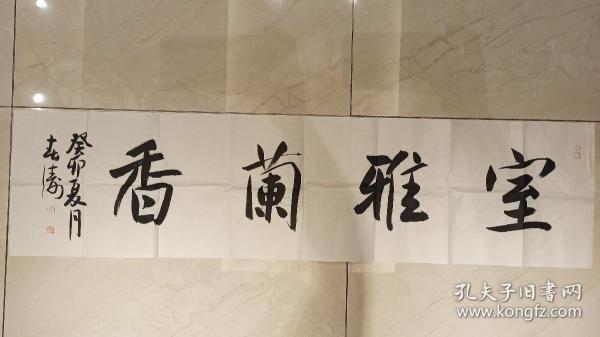 室雅蘭香
癸卯夏月
春濤
孔夫子旧書网
www.kongfz.com